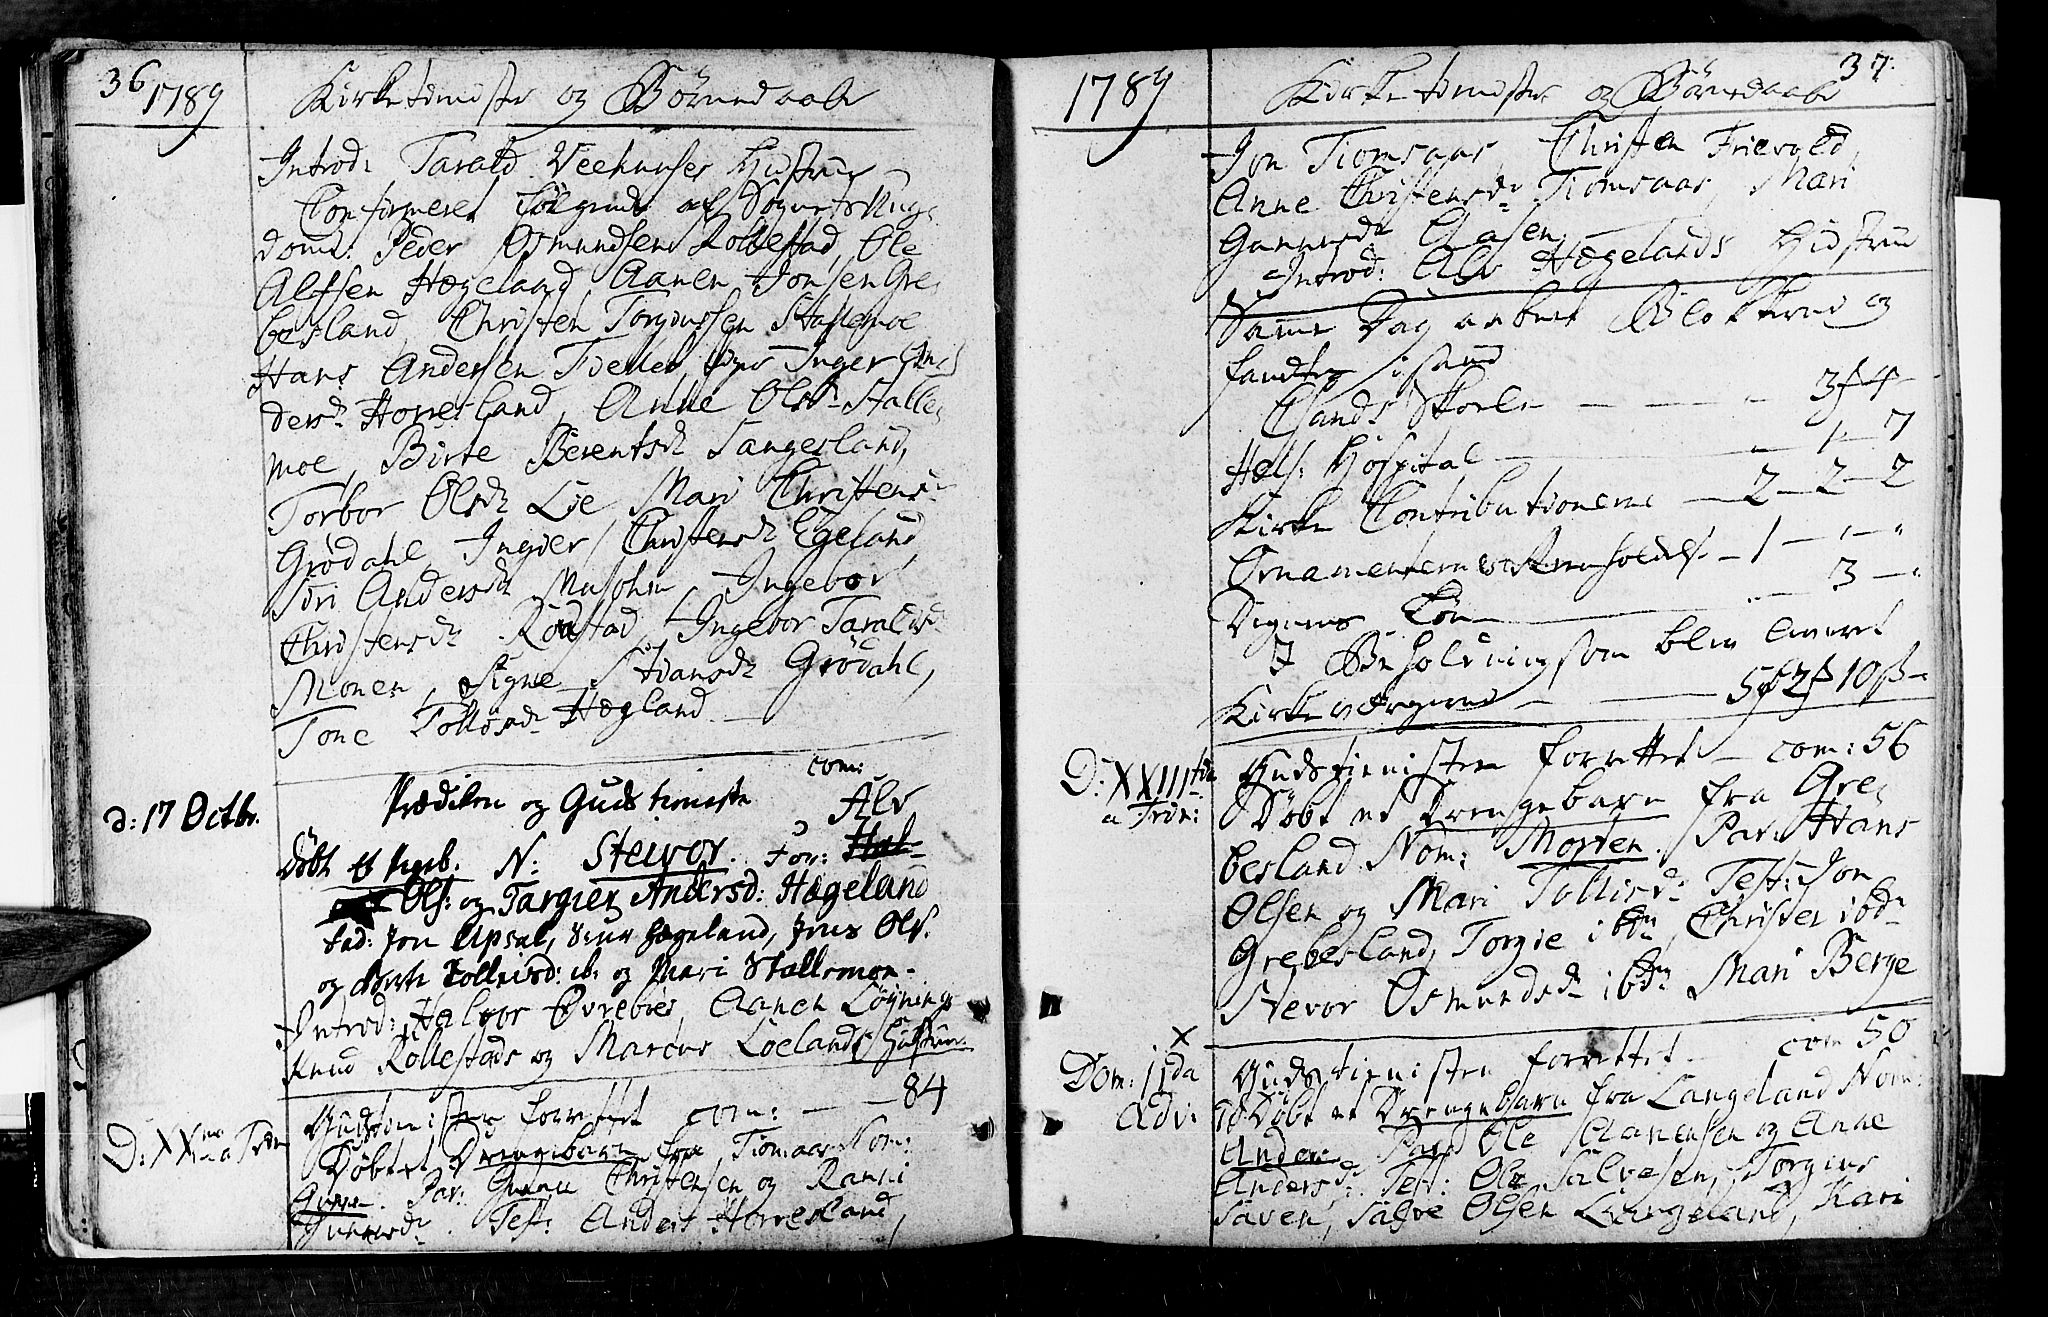 36 1789 Kirketieneste og Børnedaabe
Introd: Tarald Veehuuses Hustrue
Confirmeret følgende af Sognets Ung-
dom: Peder Osmundsen Rollestad, Ole
Alfsen Hægeland Aanen Jonsen Gre-
besland, Christen Torgiussen Stallemoe
Hans Andersen Inger An-
dersd: Horresland, Anne Olsd: Stalle-
moe, Birte Berentsd: Sangesland,
Torbor Olsd: Lie Mari Christensd:
Grødahl, Ingier Christensd: Egeland,
Siri Andersd: Ingebor
Christensd: Røistad, Ingebor Taraldsd:
Monen, Signe Stiansd: Grødahl,
Tone Tollisd: Hægland
com:
d: 17 Octbr. Prædiken og Gudstieneste
Døbt et N: Steivor. For: Alv
Ols: og Targier Andersd: Hægeland
fad: Jon Upsal, Hægeland, Jens Ols.
og Tollisd: ib: og Mari Stallemoe.
Introd: Halvor Øvrebøes, Aanen Løynings
Knud Rollestads og Marcus Loelands Hustruer
D: XX a Trin Gudstienisten forrettet com: — — 84
Døbt et Drengebarn fra Tiomsaas Nom:
Gunne. Par: Gunne Christensen og Ranni
Gunnersd: Test: Anders Horresland,
1789 Kirketieneste og Børnedaabe 37
Jon Tiomsaas, Christen Frievold,
Anne Christensd: Tiomsaas, Mari
Gunnersd: Aasen
Introd: Alv Hægelands Hustrue
Samme Dag aabnet Blokkerne og
fandtes i samme
Skole — — — 3f 4
Hels: Hospital — — 1 — 7
Kirke Contributionerne — 2 — 2 — 2
Ornamenternes — 1 — " — "
Degnens Løn — — 3 — "
I Beholdning som blev leveret
Kirkeværgerne — — 5f 2f 10ß
D: XXIII tia a Trin: Gudstienisten forrettet — com: 56
Døbt et Drengebarn fra Gre-
besland Nom: Morten. Par: Hans
Olsen og Mari Tollisd: Test: Jon
Grebesland, Torgie ibdn, Christen ibdn
Stevor Osmundsd: ibdn Mari Berge
Dom: IIda Adv: Gudstienisten forrettet — com 50
Døbt et Drengebarn fra Langeland Nom:
Anders Par: Ole Aanensen og Anne
Andersd: Test: Ole Salvesen, Torgius
Saven, Salve Olsen Langeland, Kari